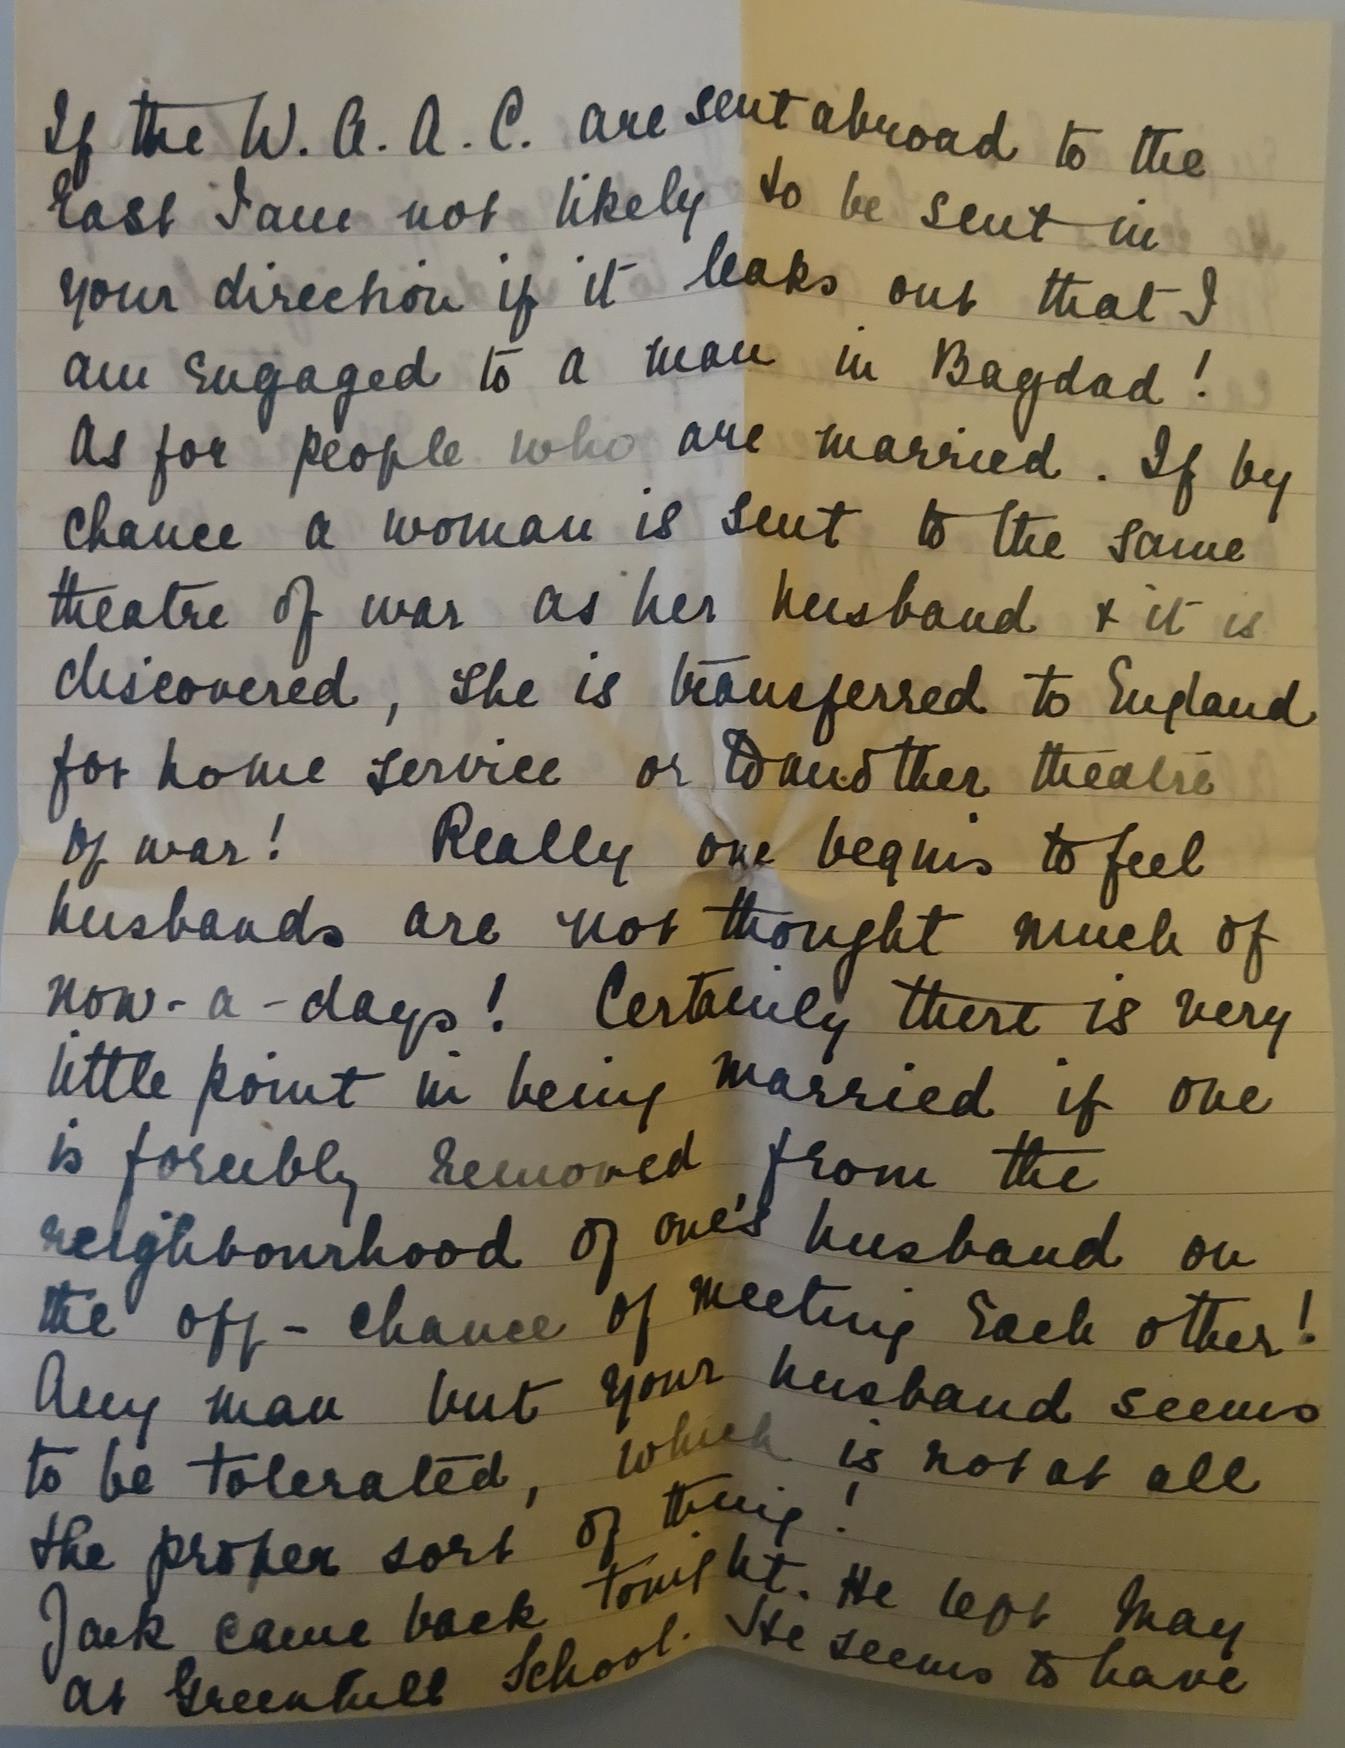 If the W. A. A. C. are sent abroad to the
East I am not likely to be sent in
your direction if it leaks out that I
am engaged to a man in Bagdad!
As for people who are married. If by
chance a woman is sent to the same
theatre of war as her husband & it is
discovered, she is transferred to England
for home service or to another theatre
of war! Really one begins to feel
husbands are not thought much of
now-a-days! Certainly there is very
little point in being married if one
is forcibly removed from the
neighbourhood of one's husband on
the off-chance of meeting each other!
Any man but your husband seems
to be tolerated, which is not at all
the proper sort of thing!
Jack came back tonight. He left May
at Greenhill School. He seems to have